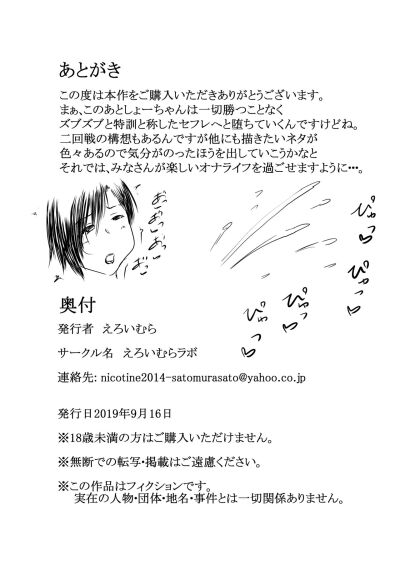 あとがき
この度は本作をご購入いただきありがとうございます。
まぁ、このあとしょーちゃんは一切勝つことなく
ズブズブと特訓と称したセフレへと堕ちていくんですけどね。
二回戦の構想もあるんですが他にも描きたいネタが
色々あるので気分がのったほうを出していこうかなと
それでは、みなさんが楽しいオナライフを過ごせますように…。
ぴゅっ
ぴゅっ
ぴゅっ
ぴゅっ
奥付
発行者 えろいむら
サークル名 えろいむらラボ
連絡先: nicotine2014-satomurasato@yahoo.co.jp
発行日2019年9月16日
※18歳未満の方はご購入いただけません。
※無断での転写・掲載はご遠慮ください。
※この作品はフィクションです。
実在の人物・団体・地名・事件とは一切関係ありません。